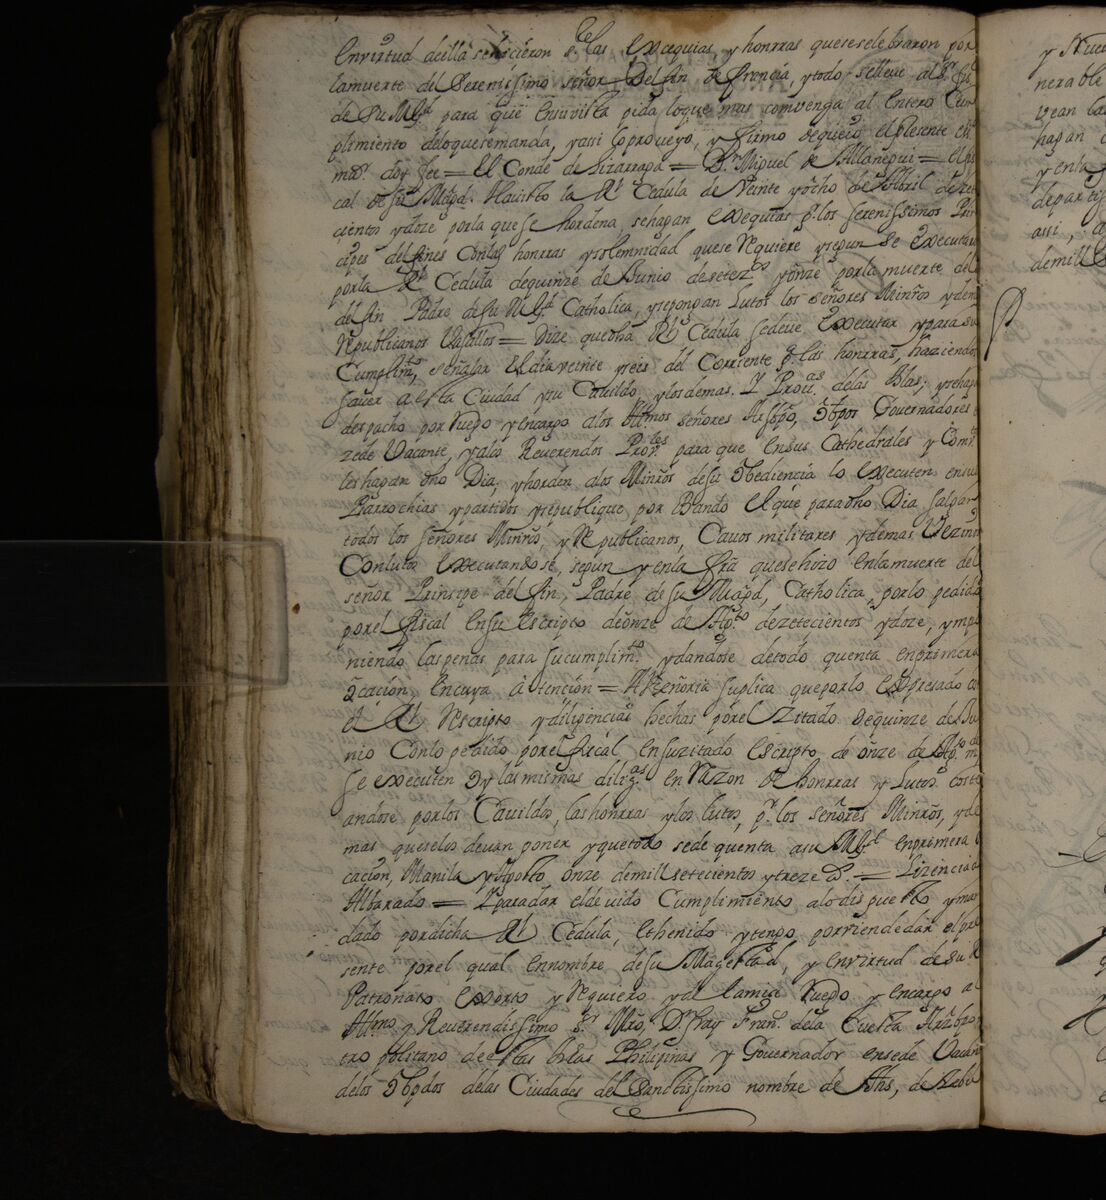 Envirtud deella se hicieron p.r las Excequias, y honrras quesecelebraron por
lamuerte del Serenissimo señor Delfin de francia, ytodo selleve al S.r fis
de Su Mg.d para que ensuvista pida loque mas comvenga al Entero Cum
plimiento deloquesemanda, yassi loproveyo, y firmo dequeio elpresente ess.no
m.or doy fee = El Conde de Lizarraga = D.n Miguel de Allanegui = el fis
cal de su Magd. Havisto la R.l Cedula de Veinte yocho de Abril desete
cientos ydoze, porla quese hordena, sehagan exequias p.r los serenissimos Prin
cipes delfines Conlas honrras ysolemnidad quese Requiere, ysegun se executaro
porla R.l Cedula dequinze de Junio desetez.os yonze porla muerte del
delfin Padre desu Mg.d Catholica, ysepongan Lutos los señores Minrõs ydem
Republicanos Vasallos = Dize que dha R.l Cedula sedeve executar yparasu
Cumplim.to, señalar El dia veinte yseis del Corriente p.r las honrras, haziendo
saver a esta Ciudad ysu Cavildo, ylosdemas. Y Prov.as delas Yslas; ysehaga
despacho por Ruego yencargo alos Illmos señores Arsõpo, Obpos Governadores e
zede Vacante, yalos Reverendos Prov.les para que ensus Cathedrales y Comv.tos
leshagan dho Dia, yhorden alos Minrõs desu Obediencia lo executen ensus
Parrochias ypartidos ysepublique por Bando El que paradho Dia salgan
todos los señores Minrõs, y Republicanos, Cavos militares ydemas Vezinos
Conlutos executandose, segun yenla frã quesehizo enlamuerte del
señor Prinsipe delfin, Padre desu Magd, Catholica, porlo pedido
porel fiscal ensu escripto deonze de Ag.to desetecientos ydoze, ympo
niendo laspenas para sucumplim.to, ydandose detodo quenta enprimera
ocacion, encuya atencion = AVseñoria suplica queporlo expresado co
el R.l Rescripto ydiligencias hechas porel Zitado dequinze deJu
nio Conlo pedido porel fiscal ensuzitado escripto de onze de Ag.to de m
se executen oy las mismas dilig.as en Razon de honrras y Lutos coste
andose porlos Cavildos, lashonrras ylos lutos, p.r los señores Minrõs, yde
mas queselos devan poner yquetodo sede quenta asu Mg.d enprimera o
cacion, Manila yAgosto onze demill setecientos ytreze a.s = Lizenciado
Albarado = Yparadar eldevido Cumplimiento alo dispuesto yman
dado pordicha R.l Cedula, ethenido ytengo porviendedar elpre
sente porel qual ennombre desu Magestad, y envirtud desu R.l
Patronato exorto y Requiero yde lamia Ruego y encargo al
Illmo y Reverendissimo S.r Mrõ. D.n fray Fran.co dela Cuesta Arzobpo
tropolitano deestas Yslas Philipinas y Governador ensede Vacan
delos Obpdos delas Ciudades del Sanctissimo nombre de Jhs, de Zebu